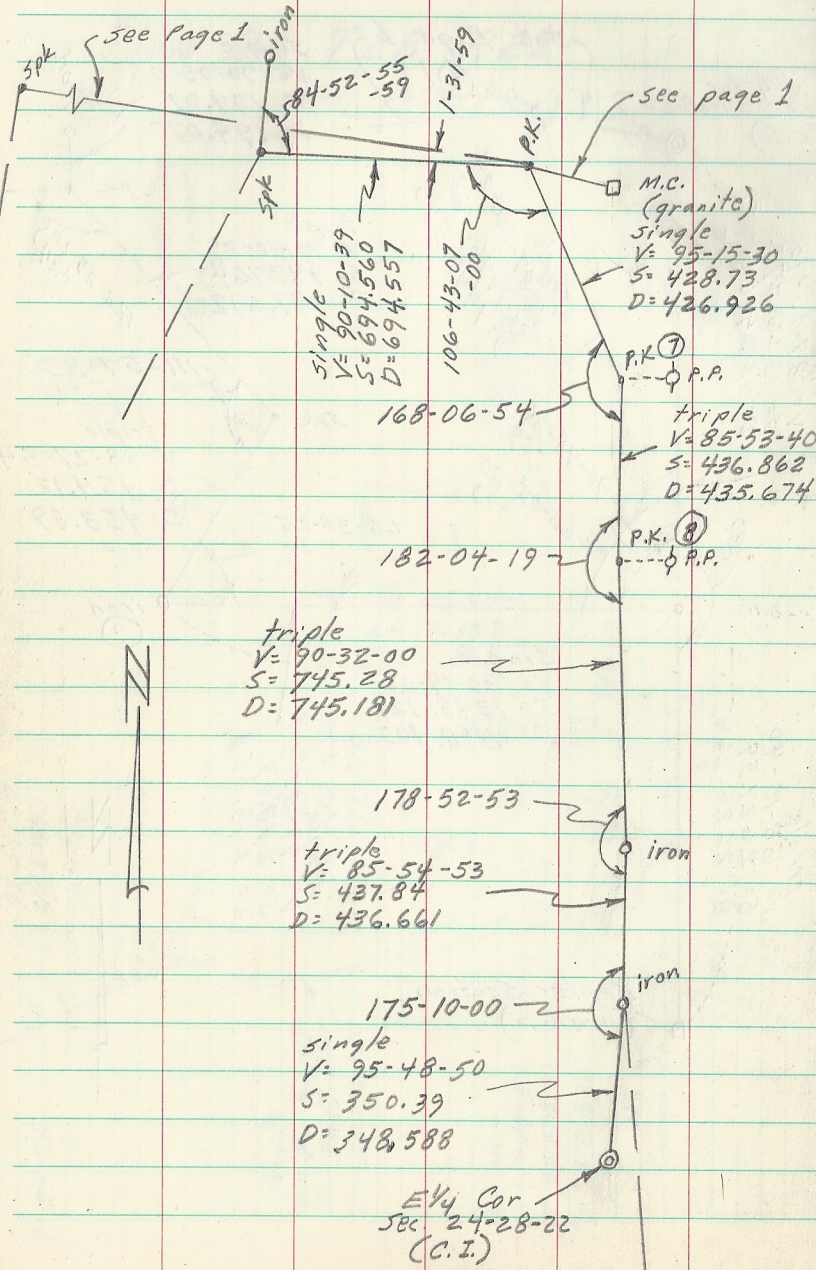 see page 1
Spk
iron
84-52-55
-59
1-31-59
see page 1
P.K.
Spk
M.C.
(granite)
single
V= 95-15-30
S= 428.73
D= 426.926
single
V= 90-10-39
S= 694.560
D= 694.557
106-43-07
-00
P.K. 7
P.P.
168-06-54
triple
V= 85-53-40
S= 436.862
D= 435.674
P.K. 8
P.P.
182-04-19
triple
V= 90-32-00
S= 745.28
D= 745.181
N
178-52-53
iron
triple
V= 85-54-53
S= 437.84
D= 436.661
iron
175-10-00
single
V= 95-48-50
S= 350.39
D= 348.588
E1/4 Cor
Sec. 24-28-22
(C.I.)